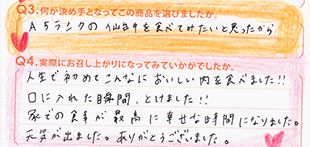 Q3.何が決め手となってこの商品を選びましたか。
A5ランクの仙台牛を食べてみたいと思ったから
Q4.実際にお召し上がりになってみていかがでしたか。
人生で初めてこんなにおいしい肉を食べました!!
口に入れた瞬間、とけました!!
家での食事が最高に幸せな時間になりました。
元気が出ました。ありがとうございました。